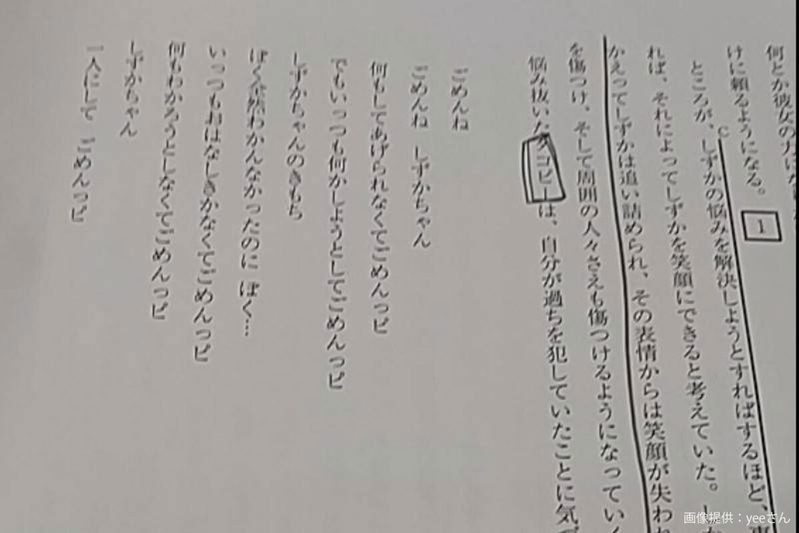 何とか彼女の力にな
けに頼るようになる。 1
ところが、しずかの悩みを解決しようとすればするほど、
C
れば、それによってしずかを笑顔にできると考えていた。し
かえってしずかは追い詰められ、その表情からは笑顔が失われ
を傷つけ、そして周囲の人々さえも傷つけるようになっていく
悩み抜いたタコピーは、自分が過ちを犯していたことに気づ
ごめんね
ごめんね しずかちゃん
何もしてあげられなくてごめんっピ
でもいっつも何かしようとしてごめんっピ
しずかちゃんのきもち
ぼく全然わかんなかったのに ぼく…
いっつもおはなしきかなくてごめんっピ
何もわかろうとしなくてごめんっピ
しずかちゃん
一人にして ごめんっピ
画像提供：yeeさん